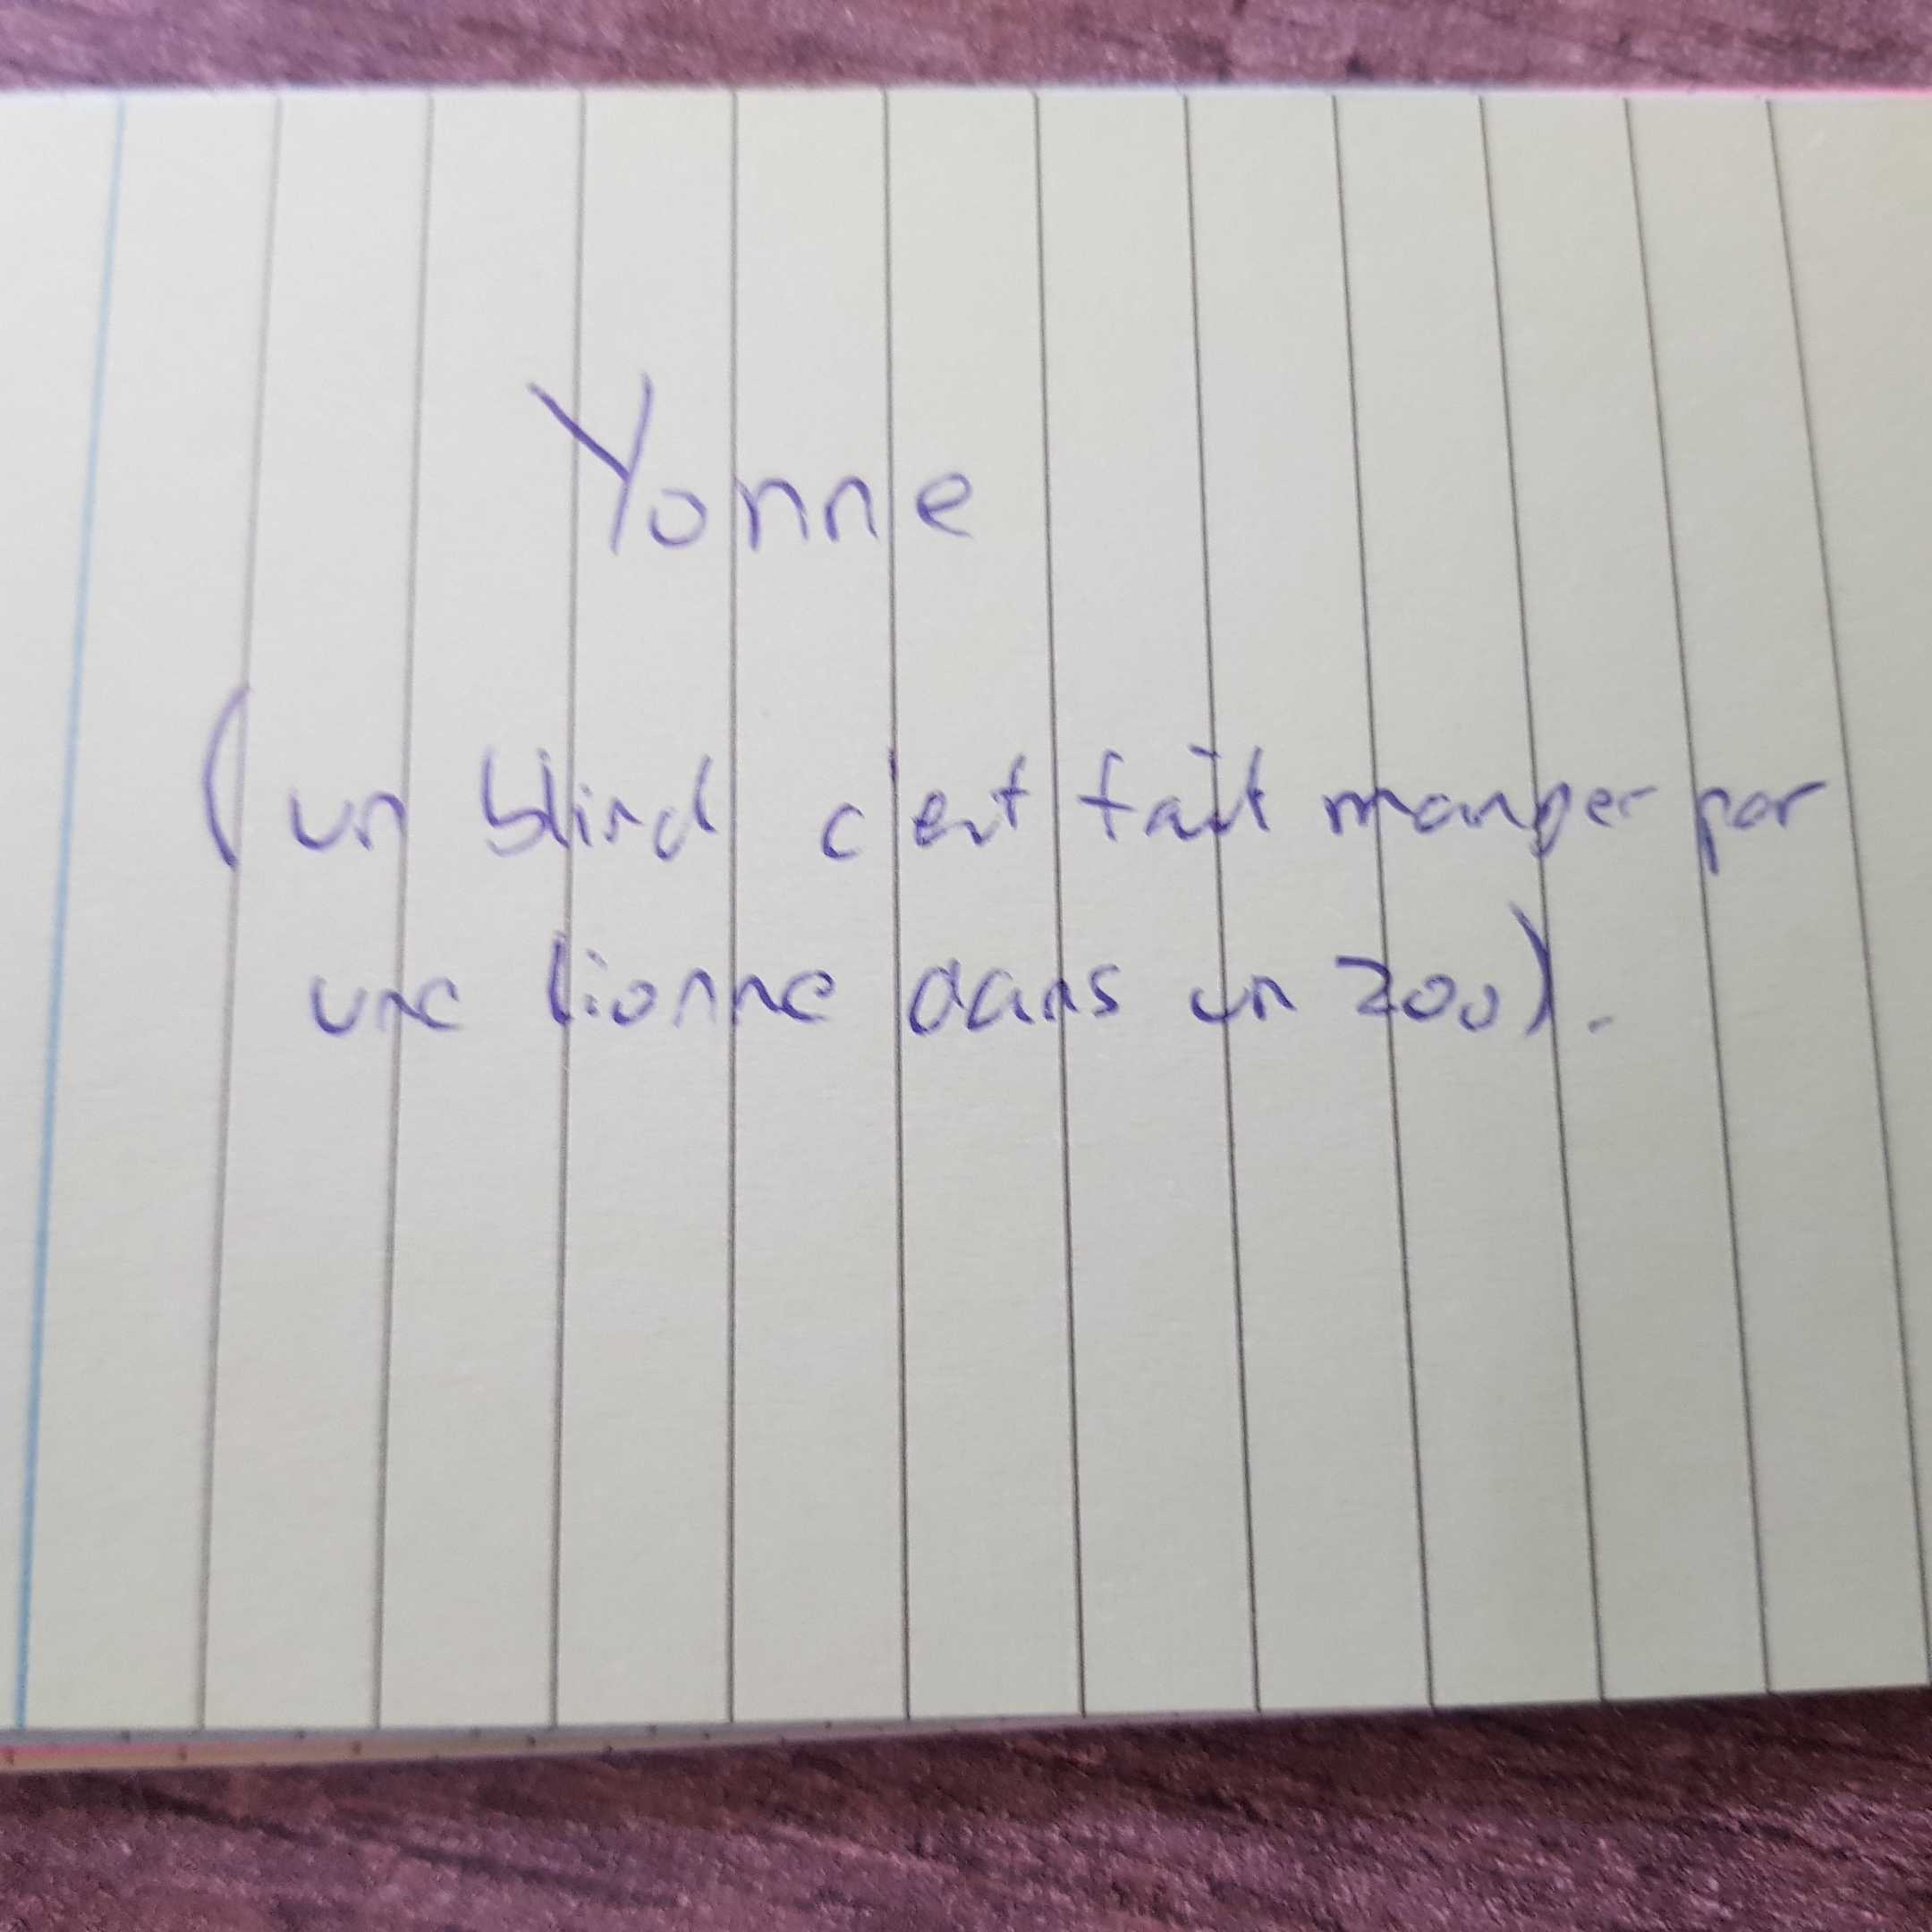 Yonne
(un blind c'est fait manger par
une lionne dans un zoo).